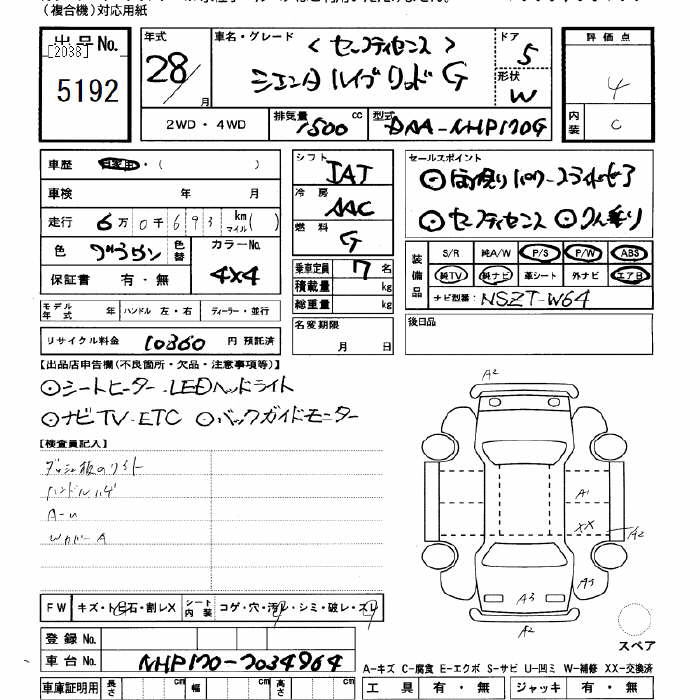 (複合機)対応用紙
出品No. [2038] 5192
年式 28/ 月
車名・グレード 〈セーフティセンス〉
シエンタ ハイブリッド G
ドア 5
形状 W
評価点 4
内装 C
2WD・4WD
排気量 1500 cc
型式 DAA-NHP170G
車歴 自家用・( )
車検 年 月
走行 6万0千693 km マイル( )
色 ブラウン 色替
カラーNo. 4X4
保証書 有・無
シフト IAT
冷房 AAC
燃料 G
乗車定員 7 名
積載量 kg
総重量 kg
名変期限 月 日
セールスポイント
◎両側パワースライドドア
◎セーフティセンス ◎7人乗り
装備品 S/R 純A/W P/S P/W ABS
純TV 純ナビ 革シート 外ナビ エアB
ナビ型番 NSZT-W64
後日品
モデル年式 年 ハンドル 左・右 ディーラー・並行
リサイクル料金 10360 円 預託済
【出品店申告欄(不良箇所・欠品・注意事項等)】
◎シートヒーター・LEDヘッドライト
◎ナビTV・ETC ◎バックガイドモニター
【検査員記入】
ハンドルハゲ
A-U
WカバーA
FW キズ・ト石・割レX シート内装 コゲ・穴・汚レ・シミ・破レ・スレ
登録No.
車台No. NHP170-7034964
車庫証明用 長さ cm 幅 cm 高さ cm
A2
A1
XX
A2
A3
A3
A2
スペア
A-キズ C-腐食 E-エクボ S-サビ U-凹ミ W-補修 XX-交換済
工具 有・無 ジャッキ 有・無